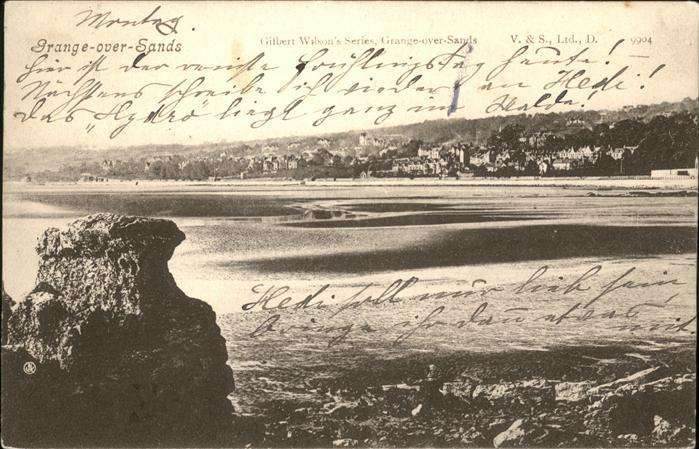 Montag.
Grange-over-Sands
Gilbert Wilson's Series, Grange-over-Sands
V. & S., Ltd., D. 9904
hier ist der reinste Frühlingstag heute!
Nächstens schreibe ich wieder an Hedi!
das „Hydro" liegt ganz im Walde!
Hedi soll nur lieb sein,
bringe ihr dann etwas mit.